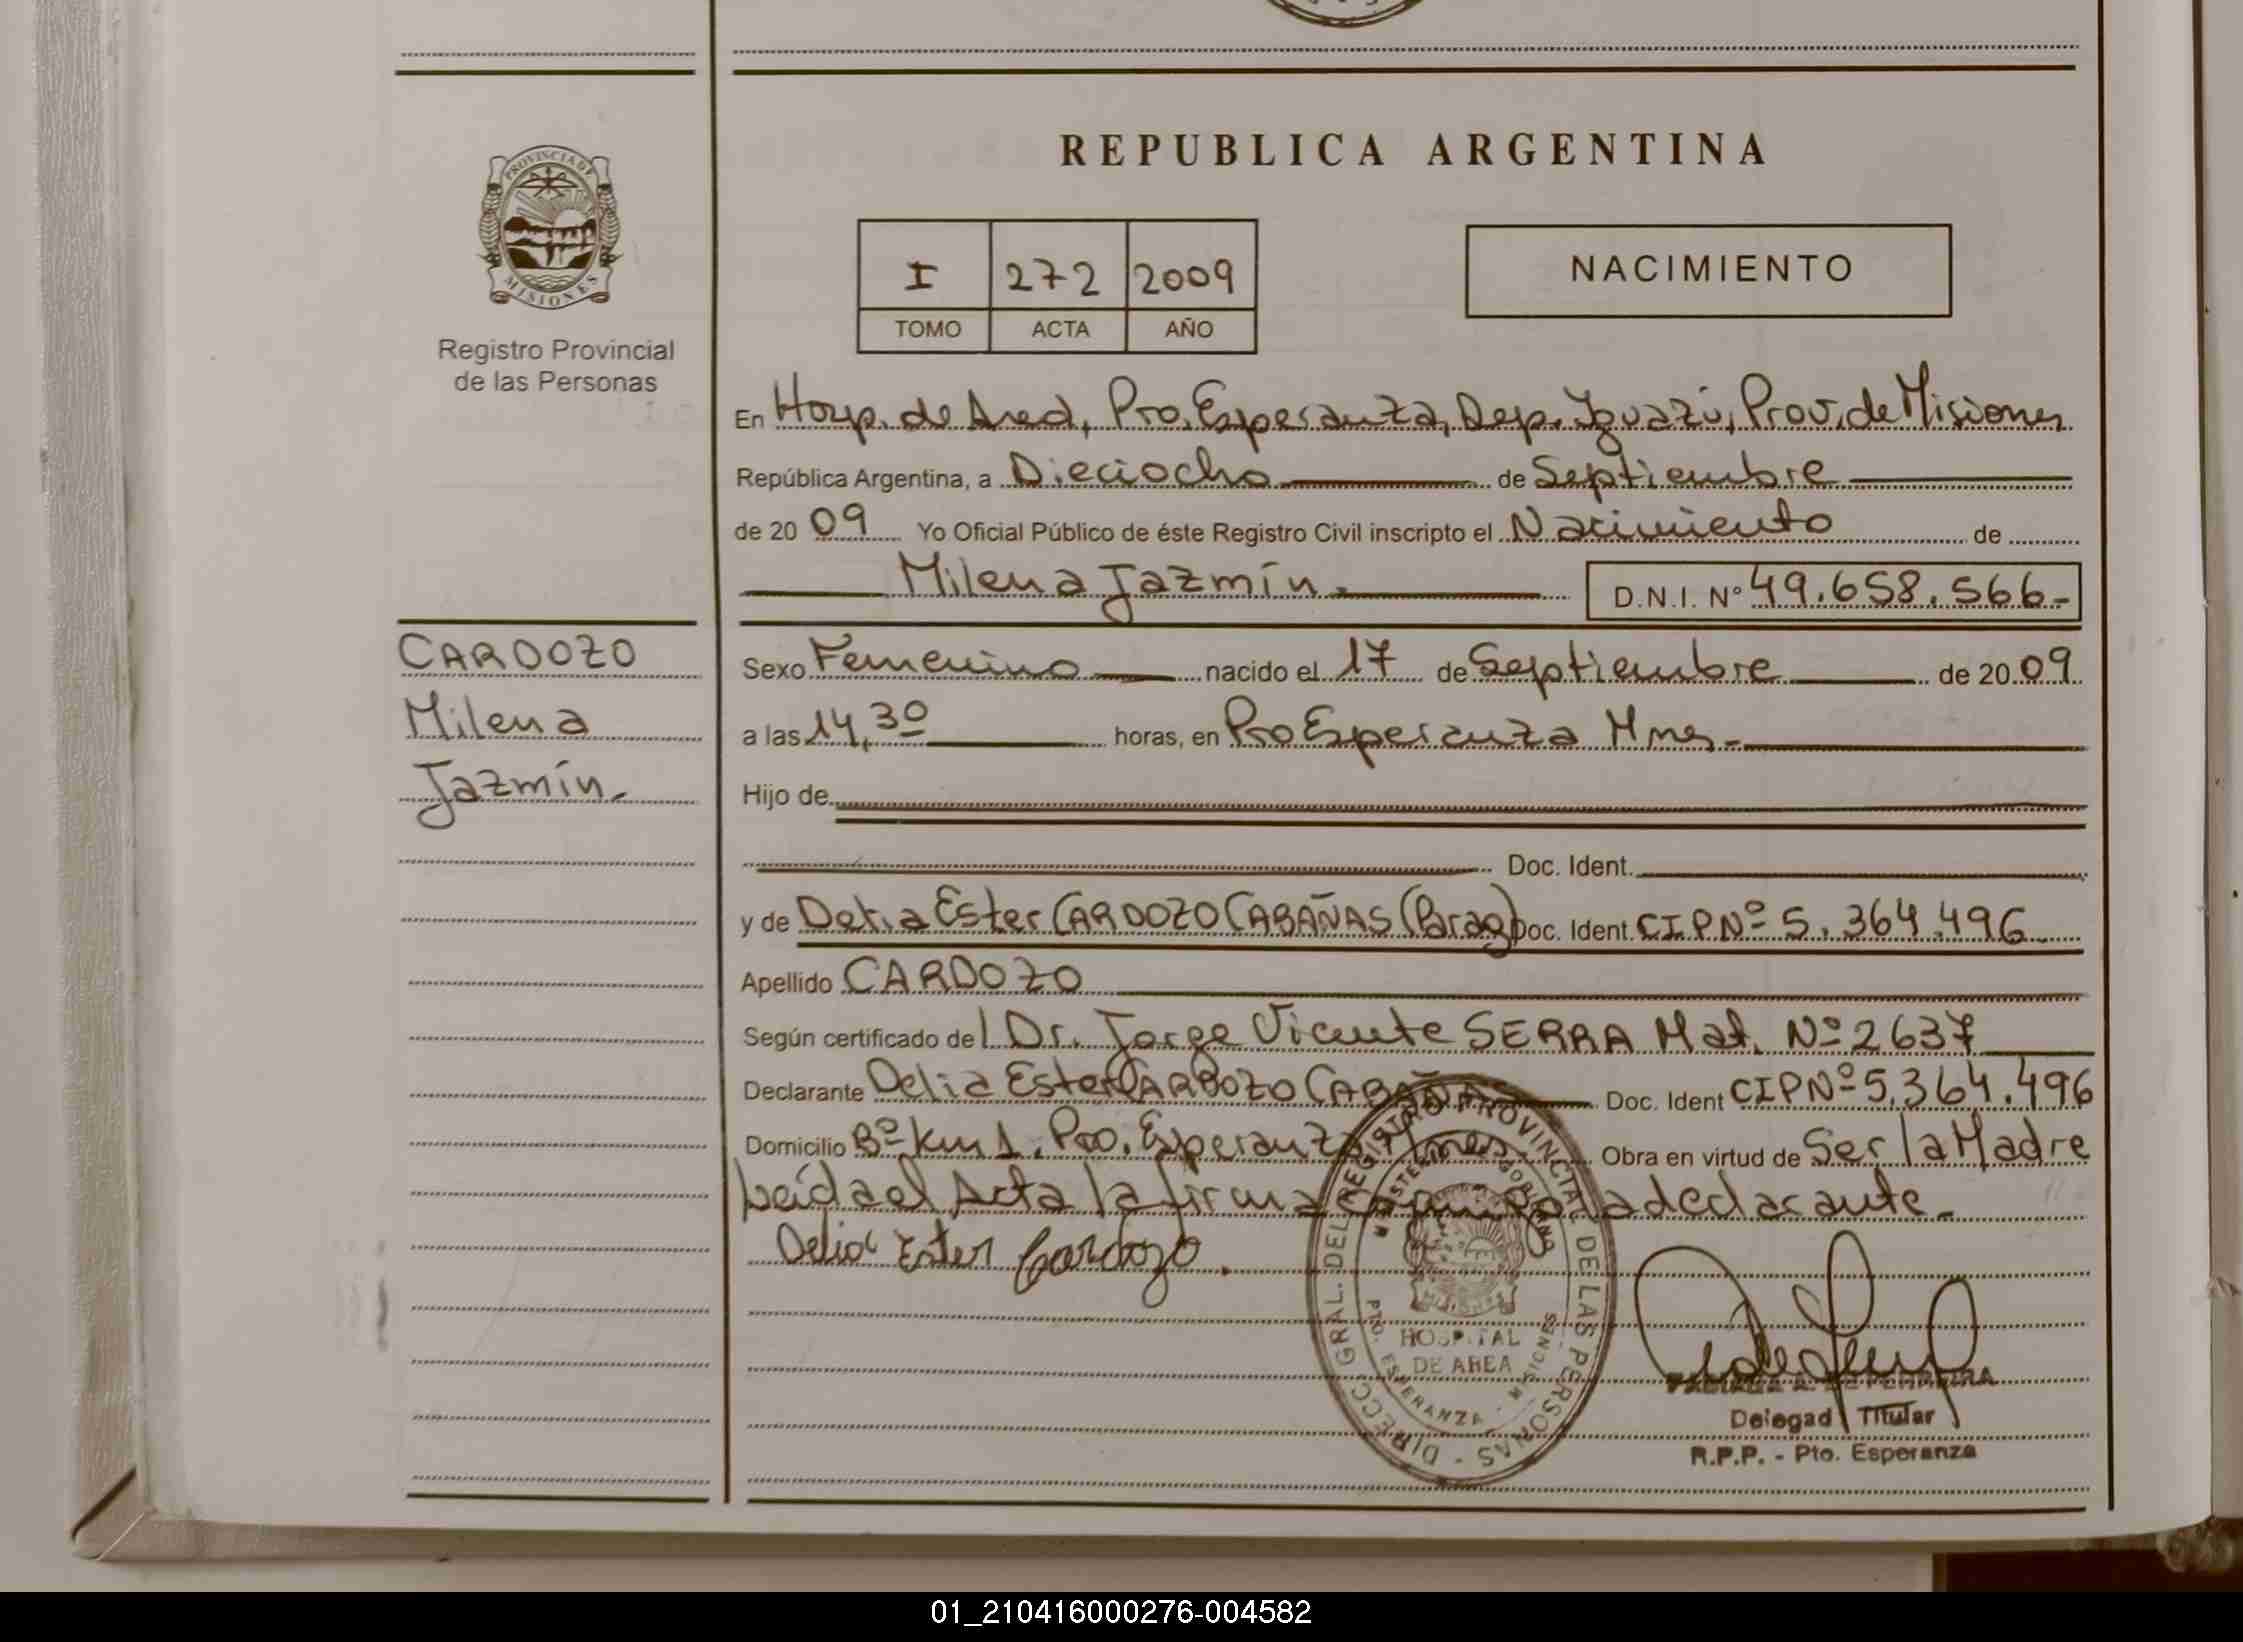 REPUBLICA ARGENTINA
PROVINCIA DE
MISIONES
Registro Provincial
de las Personas
I 272 2009
TOMO ACTA AÑO
NACIMIENTO
En Hosp. de Area, Pto. Esperanza, Dep. Iguazú, Prov. de Misiones
República Argentina, a Dieciocho de Septiembre
de 2009 Yo Oficial Público de éste Registro Civil inscripto el Nacimiento de
Milena Jazmín. D.N.I. Nº 49.658.566-
CARDOZO
Milena
Jazmín.
Sexo Femenino nacido el 17 de Septiembre de 2009
a las 14,30 horas, en Pto Esperanza Mnes-
Hijo de
Doc. Ident.
y de Delia Ester CARDOZO CABAÑAS (Parag) Doc. Ident. CIPNº 5.364.496
Apellido CARDOZO
Según certificado del Dr. Jorge Vicente SERRA Mat. Nº 2637
Declarante Delia Ester CARDOZO CABAÑAS Doc. Ident CIPNº 5.364.496
Domicilio Bº Km 1. Pto. Esperanza Mnes. Obra en virtud de Ser la Madre
Leída el Acta la firma conmigo la declarante.
Delia Ester Cardozo.
DIRECC. GRAL. DEL REGISTRO PROVINCIAL DE LAS PERSONAS
MISIONES
HOSPITAL
DE AREA
PTO. ESPERANZA - MISIONES
Delegad Titular
R.P.P. - Pto. Esperanza
01_210416000276-004582